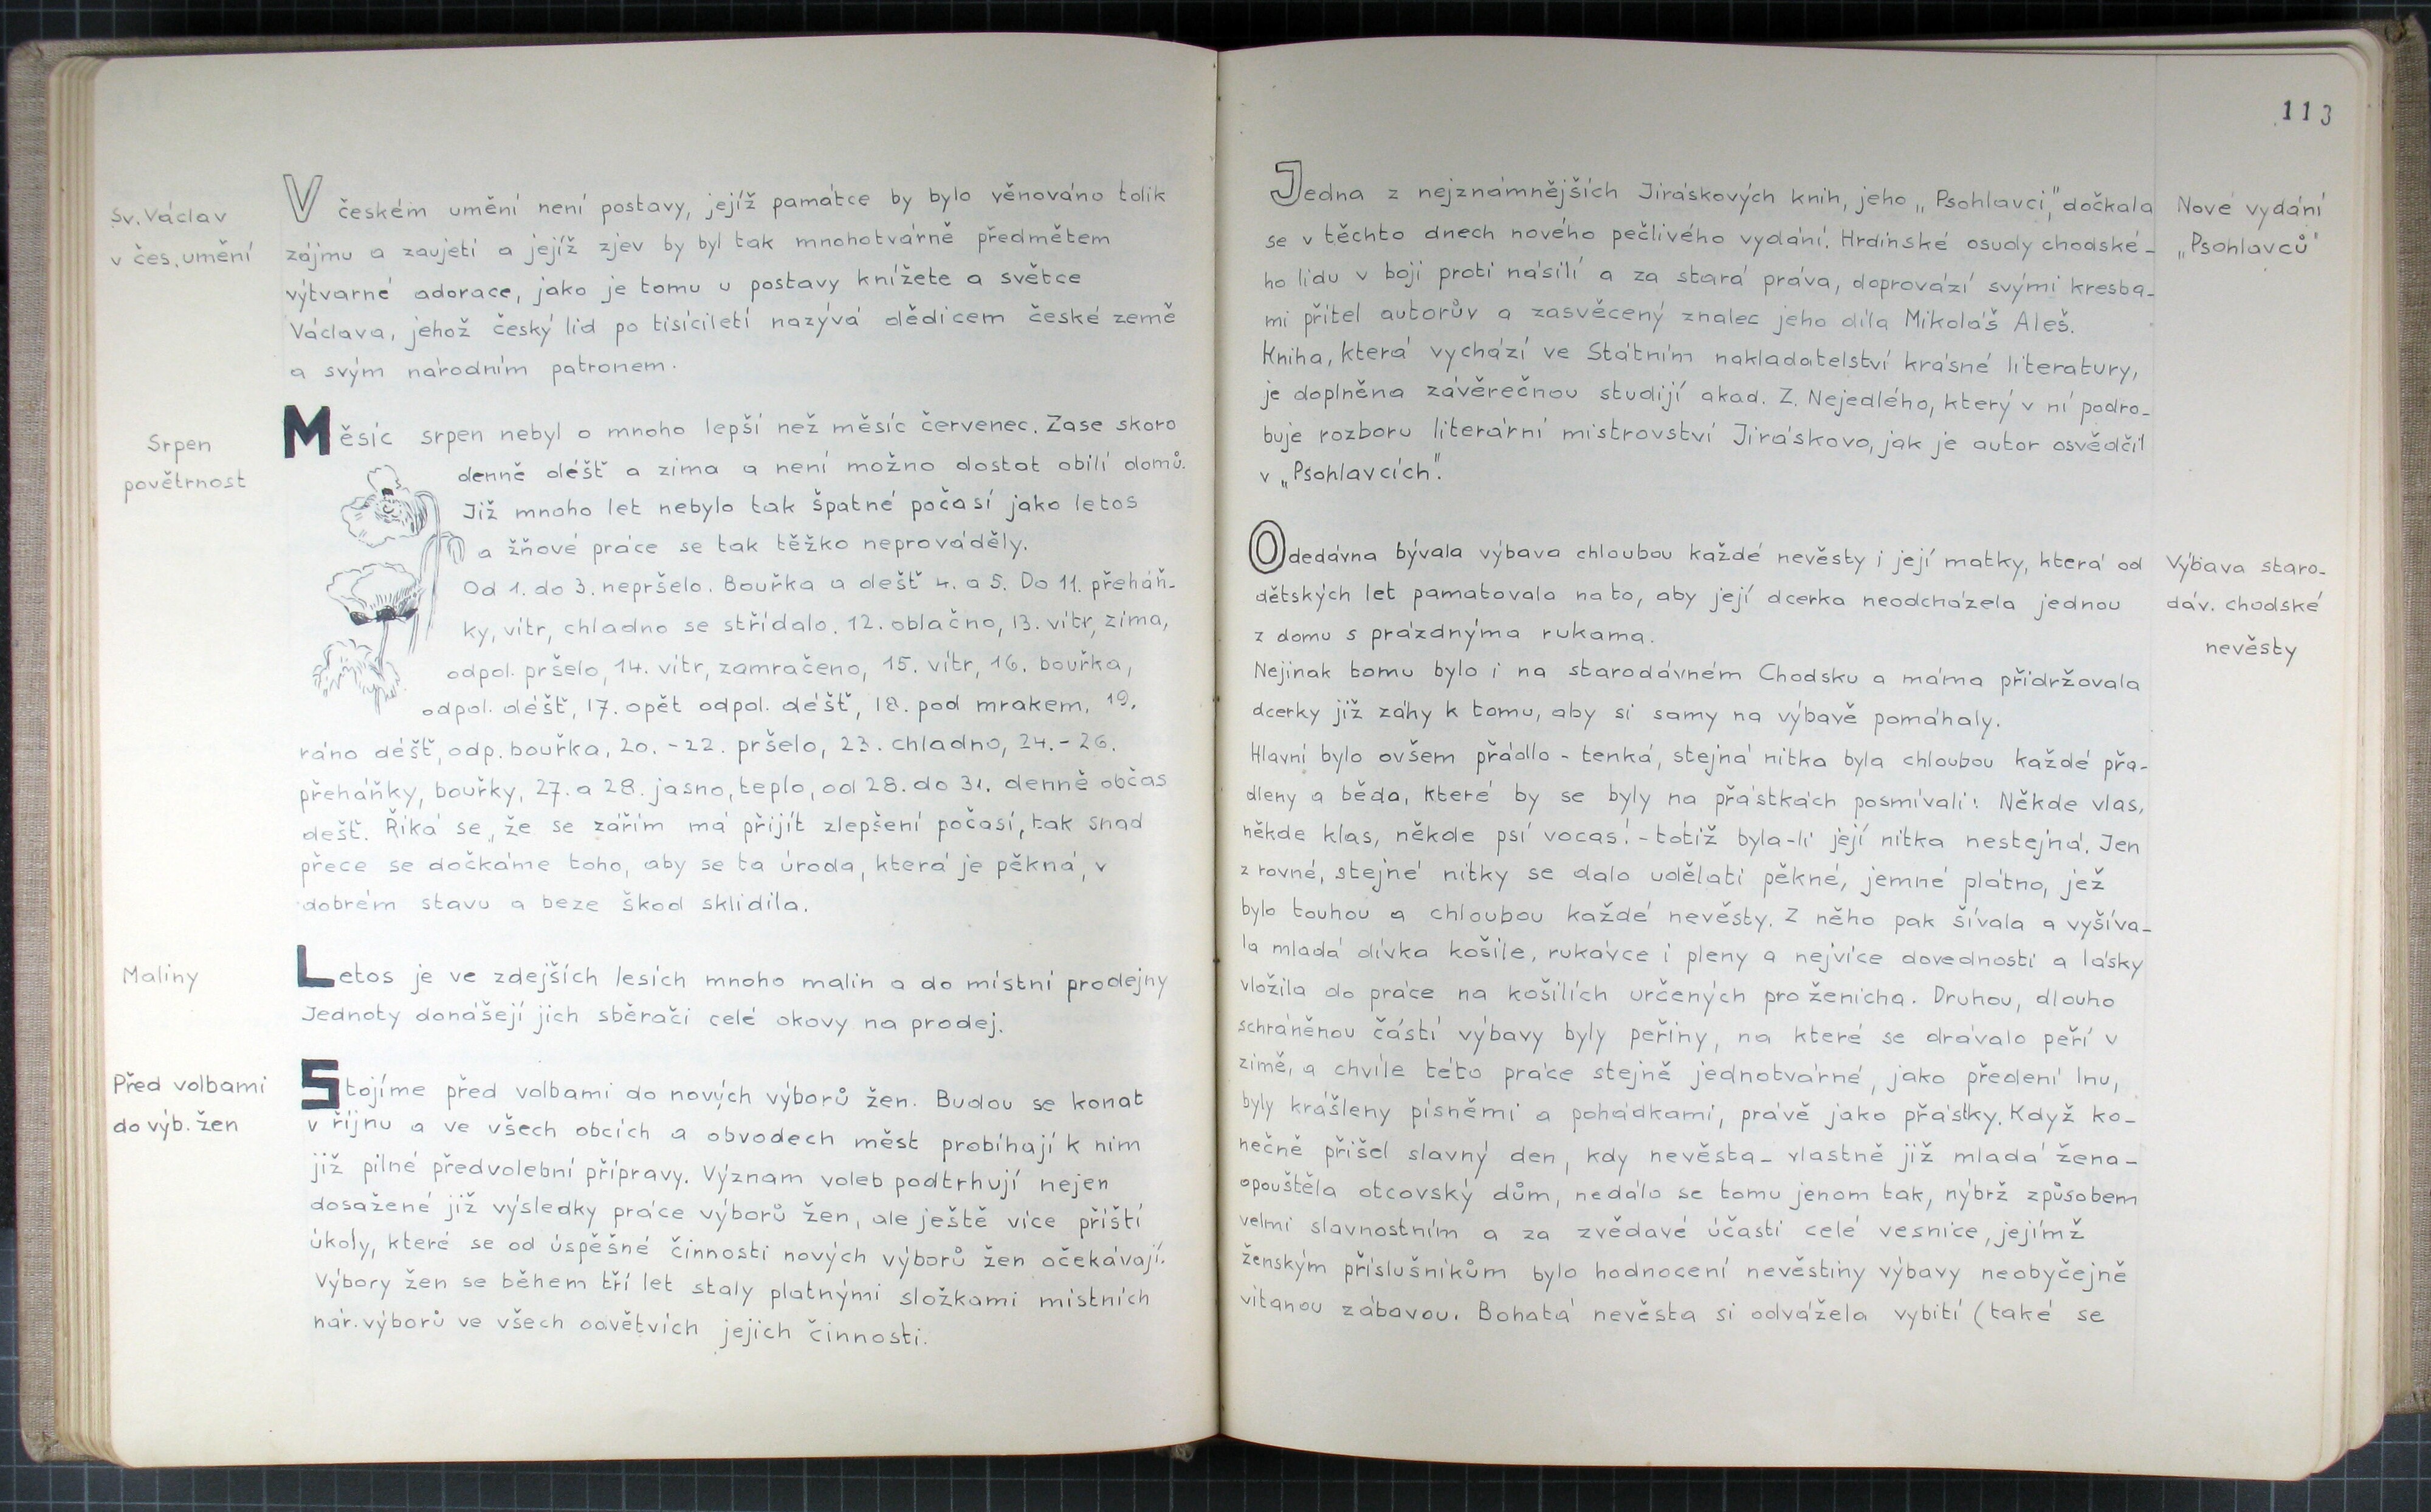 Sv. Václav
v čes. umění
V českém umění není postavy, jejíž památce by bylo věnováno tolik
zájmu a zaujetí a jejíž zjev by byl tak mnohotvárně předmětem
výtvarné adorace, jako je tomu u postavy knížete a světce
Václava, jehož český lid po tisíciletí nazývá dědicem české země
a svým národním patronem.
Srpen
povětrnost
Měsíc srpen nebyl o mnoho lepší než měsíc červenec. Zase skoro
denně déšť a zima a není možno dostat obilí domů.
Již mnoho let nebylo tak špatné počasí jako letos
a žňové práce se tak těžko neprováděly.
Od 1. do 3. nepršelo. Bouřka a dešť 4. a 5. Do 11. přeháň-
ky, vítr, chladno se střídalo. 12. oblačno, 13. vítr, zima,
odpol. pršelo, 14. vítr, zamračeno, 15. vítr, 16. bouřka,
odpol. déšť, 17. opět odpol. déšť, 18. pod mrakem, 19.
ráno déšť, odp. bouřka, 20. - 22. pršelo, 23. chladno, 24. - 26.
přeháňky, bouřky, 27. a 28. jasno, teplo, od 28. do 31. denně občas
dešť. Říká se, že se zářím má přijít zlepšení počasí, tak snad
přece se dočkáme toho, aby se ta úroda, která je pěkná, v
dobrém stavu a beze škod sklidila.
Maliny
Letos je ve zdejších lesích mnoho malin a do místní prodejny
Jednoty donášejí jich sběrači celé okovy na prodej.
Před volbami
do výb. žen
Stojíme před volbami do nových výborů žen. Budou se konat
v říjnu a ve všech obcích a obvodech měst probíhají k nim
již pilné předvolební přípravy. Význam voleb podtrhují nejen
dosažené již výsledky práce výborů žen, ale ještě více příští
úkoly, které se od úspěšné činnosti nových výborů žen očekávají.
Výbory žen se během tří let staly platnými složkami místních
nár. výborů ve všech odvětvích jejich činnosti.
113
Jedna z nejznámnějších Jiráskových knih, jeho „Psohlavci," dočkala
se v těchto dnech nového pečlivého vydání. Hrdinské osudy chodské-
ho lidu v boji proti násilí a za stará práva, doprovází svými kresba-
mi přítel autorův a zasvěcený znalec jeho díla Mikoláš Aleš.
Kniha, která vychází ve Státním nakladatelství krásné literatury,
je doplněna závěrečnou studijí akad. Z. Nejedlého, který v ní podro-
buje rozboru literární mistrovství Jiráskovo, jak je autor osvědčil
v „Psohlavcích".
Nové vydání
„Psohlavců"
Odedávna bývala výbava chloubou každé nevěsty i její matky, která od
dětských let pamatovala na to, aby její dcerka neodcházela jednou
z domu s prázdnýma rukama.
Nejinak tomu bylo i na starodávném Chodsku a máma přidržovala
dcerky již záhy k tomu, aby si samy na výbavě pomáhaly.
Hlavní bylo ovšem přádlo - tenká, stejná nitka byla chloubou každé přa-
dleny a běda, které by se byly na přástkách posmívali: Někde vlas,
někde klas, někde psí vocas! - totiž byla-li její nitka nestejná. Jen
z rovné, stejné nitky se dalo udělati pěkné, jemné plátno, jež
bylo touhou a chloubou každé nevěsty. Z něho pak šívala a vyšíva-
la mladá dívka košile, rukávce i pleny a nejvíce dovednosti a lásky
vložila do práce na košilích určených pro ženicha. Druhou, dlouho
schráněnou částí výbavy byly peřiny, na které se drávalo peří v
zimě, a chvíle této práce stejně jednotvárné, jako předení lnu,
byly krášleny písněmi a pohádkami, právě jako přástky. Když ko-
nečně přišel slavný den, kdy nevěsta - vlastně již mladá žena -
opouštěla otcovský dům, nedálo se tomu jenom tak, nýbrž způsobem
velmi slavnostním a za zvědavé účasti celé vesnice, jejímž
ženským příslušníkům bylo hodnocení nevěstiny výbavy neobyčejně
vítanou zábavou. Bohatá nevěsta si odvážela vybití (také se
Výbava staro-
dáv. chodské
nevěsty